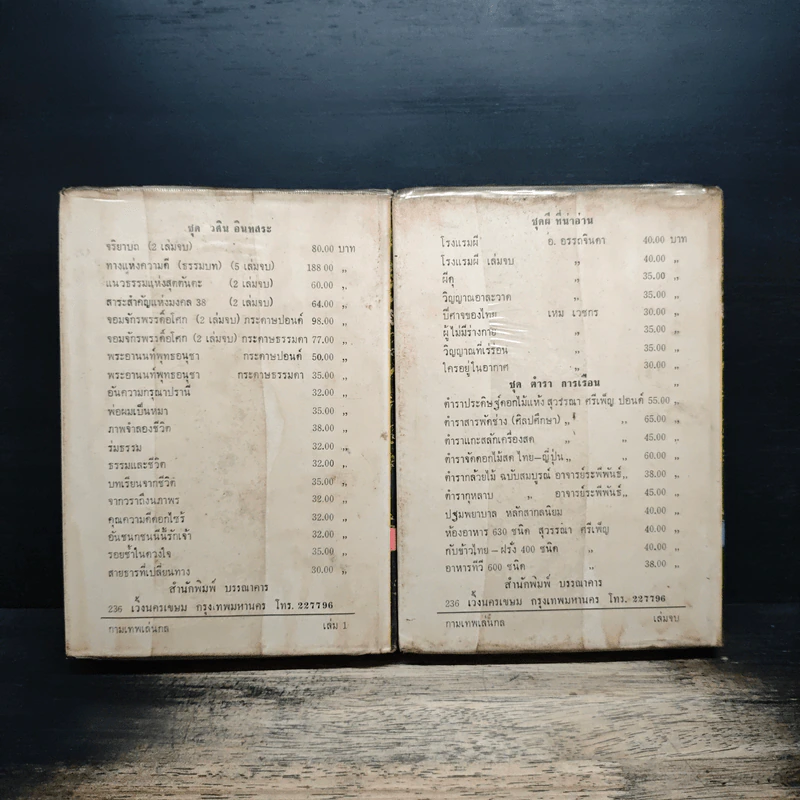 ชุด วศิน อินทสระ
จริยาบถ (2 เล่มจบ) 80.00 บาท
ทางแห่งความดี (ธรรมบท) (5 เล่มจบ) 188 00 „
แนวธรรมแห่งสุตตันตะ (2 เล่มจบ) 60.00 „
สาระสำคัญแห่งมงคล 38 (2 เล่มจบ) 64.00 „
จอมจักรพรรดิ์อโศก (2 เล่มจบ) กระดาษปอนด์ 98.00 „
จอมจักรพรรดิ์อโศก (2 เล่มจบ) กระดาษธรรมดา 77.00 „
พระอานนท์พุทธอนุชา กระดาษปอนด์ 50.00 „
พระอานนท์พุทธอนุชา กระดาษธรรมดา 35.00 „
อันความกรุณาปรานี 32.00 „
พ่อผมเป็นหมา 35.00 „
ภาพจำลองชีวิต 38.00 „
ร่มธรรม 32.00 „
ธรรมและชีวิต 32.00 „
บทเรียนจากชีวิต 35.00 „
จากวราถึงนภาพร 32.00 „
คุณความดีดอกไซร้ 32.00 „
อันชนกชนนีนี้รักเจ้า 32.00 „
รอยช้ำในดวงใจ 35.00 „
สายธารที่เปลี่ยนทาง 30.00 „
สำนักพิมพ์ บรรณาคาร
236 เวิ้งนครเขษม กรุงเทพมหานคร โทร. 227796
กามเทพเล่นกล เล่ม 1
ชุดผี ที่น่าอ่าน
โรงแรมผี อ. อรรถจินดา 40.00 บาท
โรงแรมผี เล่มจบ „ 40.00 „
ผีดุ „ 35.00 „
วิญญาณอาละวาด „ 35.00 „
ปีศาจของไทย เหม เวชกร 30.00 „
ผู้ไม่มีร่างกาย „ 35.00 „
วิญญาณที่เร่ร่อน „ 35.00 „
ใครอยู่ในอากาศ „ 30.00 „
ชุด ตำรา การเรือน „
ตำราประดิษฐ์ดอกไม้แห้ง สุวรรณา ศรีเพ็ญ ปอนด์ 55.00 „
ตำราสารพัดช่าง (ศิลปศึกษา) „ „ 65.00 „
ตำราแกะสลักเครื่องสด „ „ 45.00 „
ตำราจัดดอกไม้สด ไทย–ญี่ปุ่น „ „ 60.00 „
ตำรากล้วยไม้ ฉบับสมบูรณ์ อาจารย์ระพีพันธุ์ „ 38.00 „
ตำรากุหลาบ „ อาจารย์ระพีพันธุ์ „ 45.00 „
ปฐมพยาบาล หลักสากลนิยม 40.00 „
ห้องอาหาร 630 ชนิด สุวรรณา ศรีเพ็ญ 40.00 „
กับข้าวไทย – ฝรั่ง 400 ชนิด „ 40.00 „
อาหารทีวี 600 ชนิด „ 38.00 „
สำนักพิมพ์ บรรณาคาร
236 เวิ้งนครเขษม กรุงเทพมหานคร โทร. 227796
กามเทพเล่นกล เล่มจบ